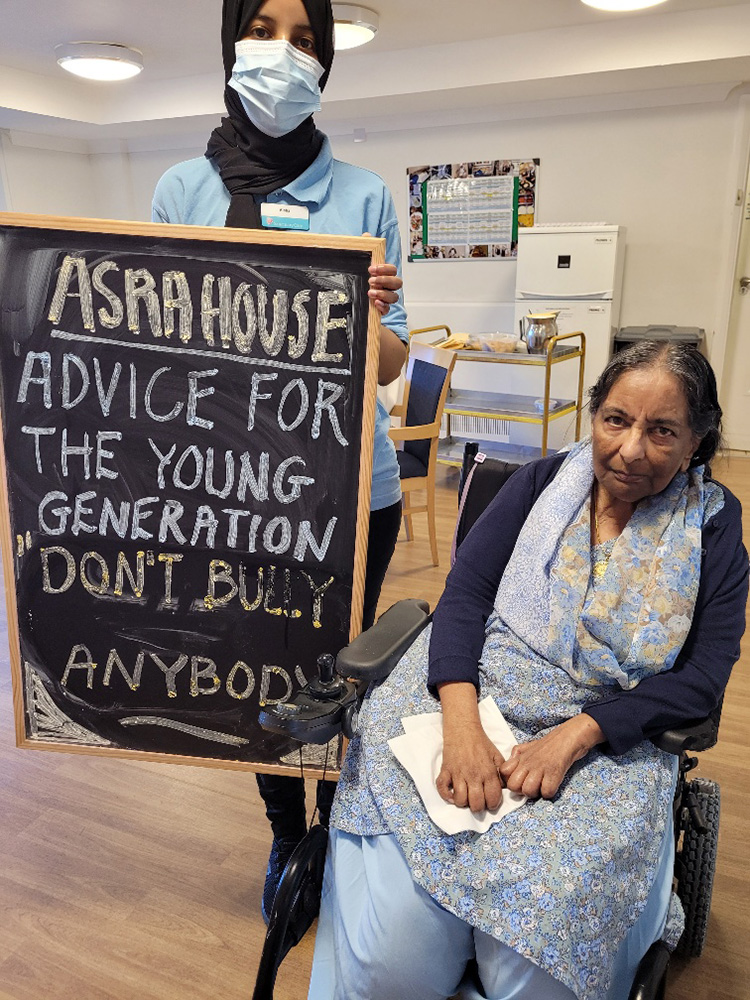 ASRA HOUSE
ADVICE FOR
THE YOUNG
GENERATION
"DON'T BULLY
ANYBODY